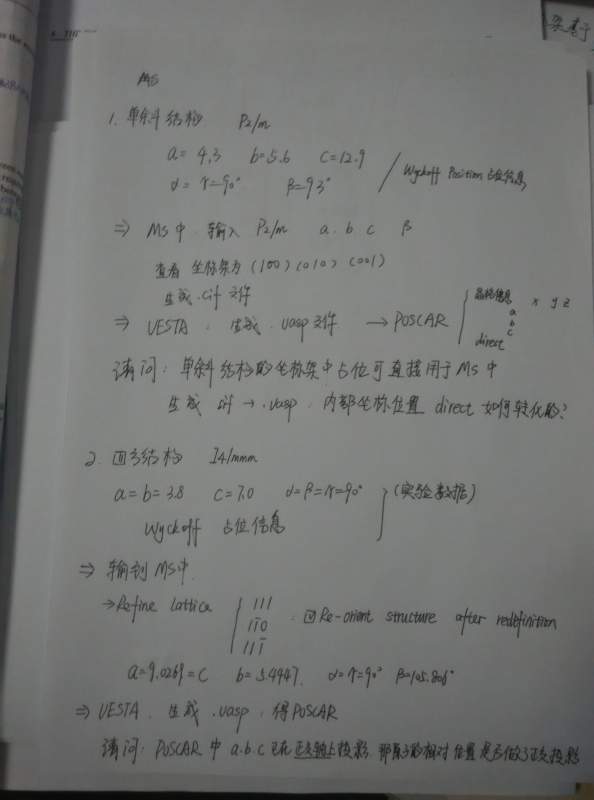 MS
1. 单斜结构 P2/m
a= 4.3 b=5.6 c=12.9
α= γ=90° β=93° / Wyckoff Position 占位信息
⇒ MS中 输入 P2/m a. b c β
查看 坐标架为 (100) (010) (001)
生成 .cif 文件
⇒ VESTA . 生成 .vasp文件 → POSCAR { 晶格信息 x y z
a
b
c
direct
请问: 单斜结构的坐标架中占位可直接用于MS中
生成 cif → .vasp . 内部坐标位置 direct 如何转化的?
2. 四方结构 I4/mmm
a=b=3.8 c=7.0 α=β=γ=90° } (实验数据)
Wyckoff 占位信息
⇒ 输到 MS中.
→Refine Lattica { 111
11̄0
111̄
☑Re-orient structure after redefinition
a=9.0269=c b=5.4447. α=γ=90° β=105.806°
⇒ VESTA . 生成 .vasp . 得POSCAR
请问: POSCAR 中 a.b.c 已在 正交轴上投影, 那原子的相对位置是否做了正交投影